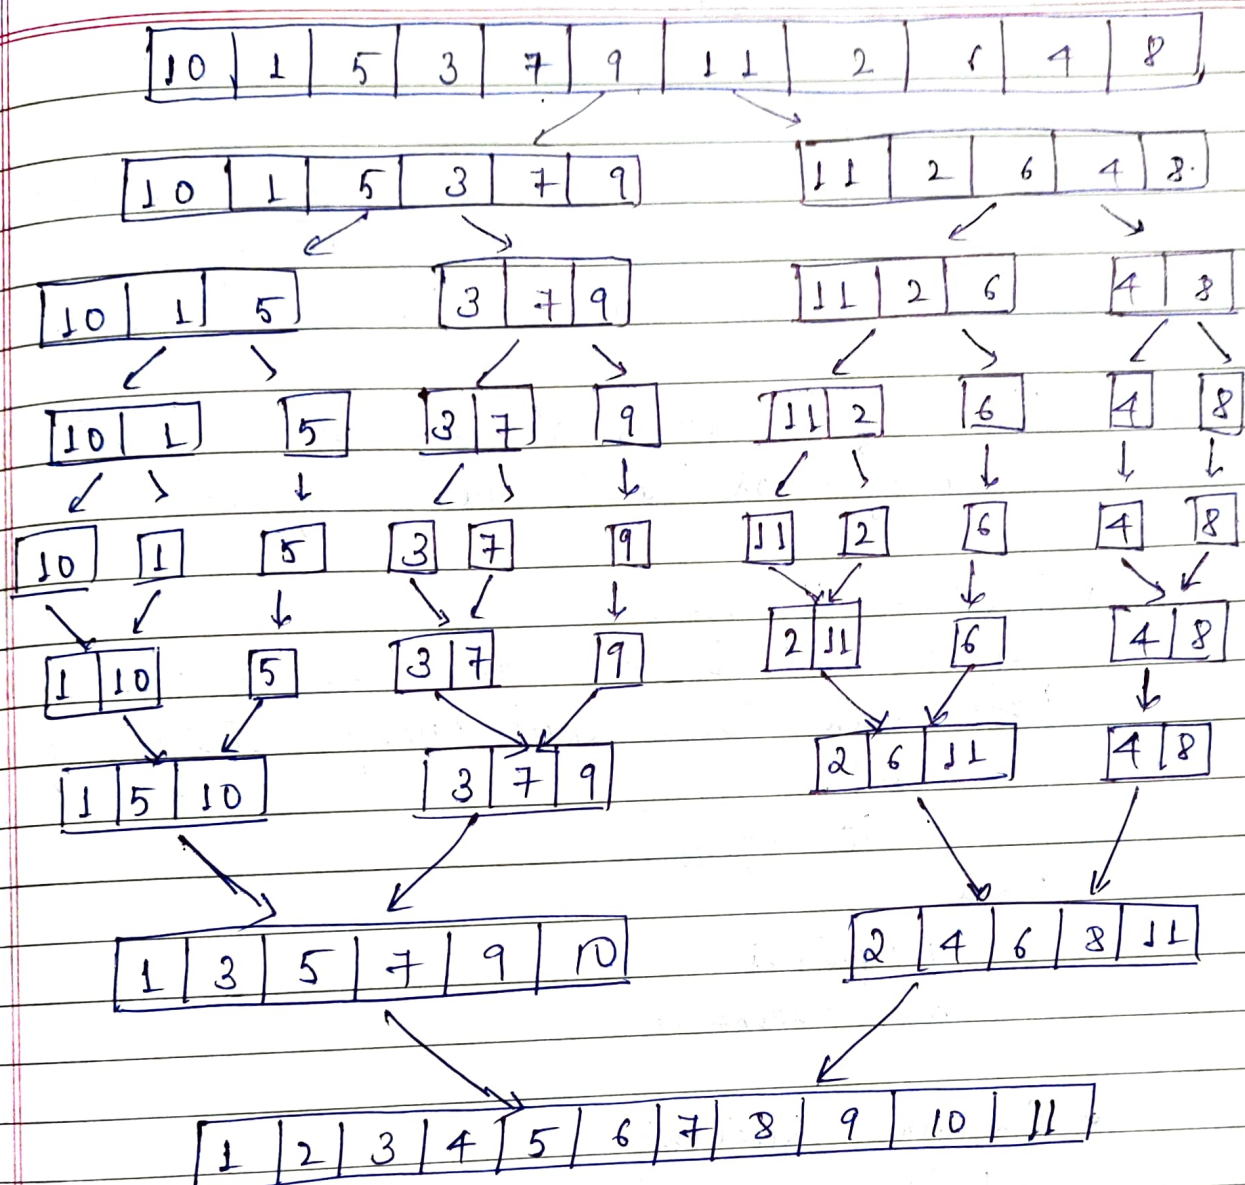 10 1 5 3 7 9 11 2 6 4 8
10 1 5 3 7 9 11 2 6 4 8
10 1 5 3 7 9 11 2 6 4 8
10 1 5 3 7 9 11 2 6 4 8
10 1 5 3 7 9 11 2 6 4 8
1 10 5 3 7 9 2 11 6 4 8
1 5 10 3 7 9 2 6 11 4 8
1 3 5 7 9 10 2 4 6 8 11
1 2 3 4 5 6 7 8 9 10 11